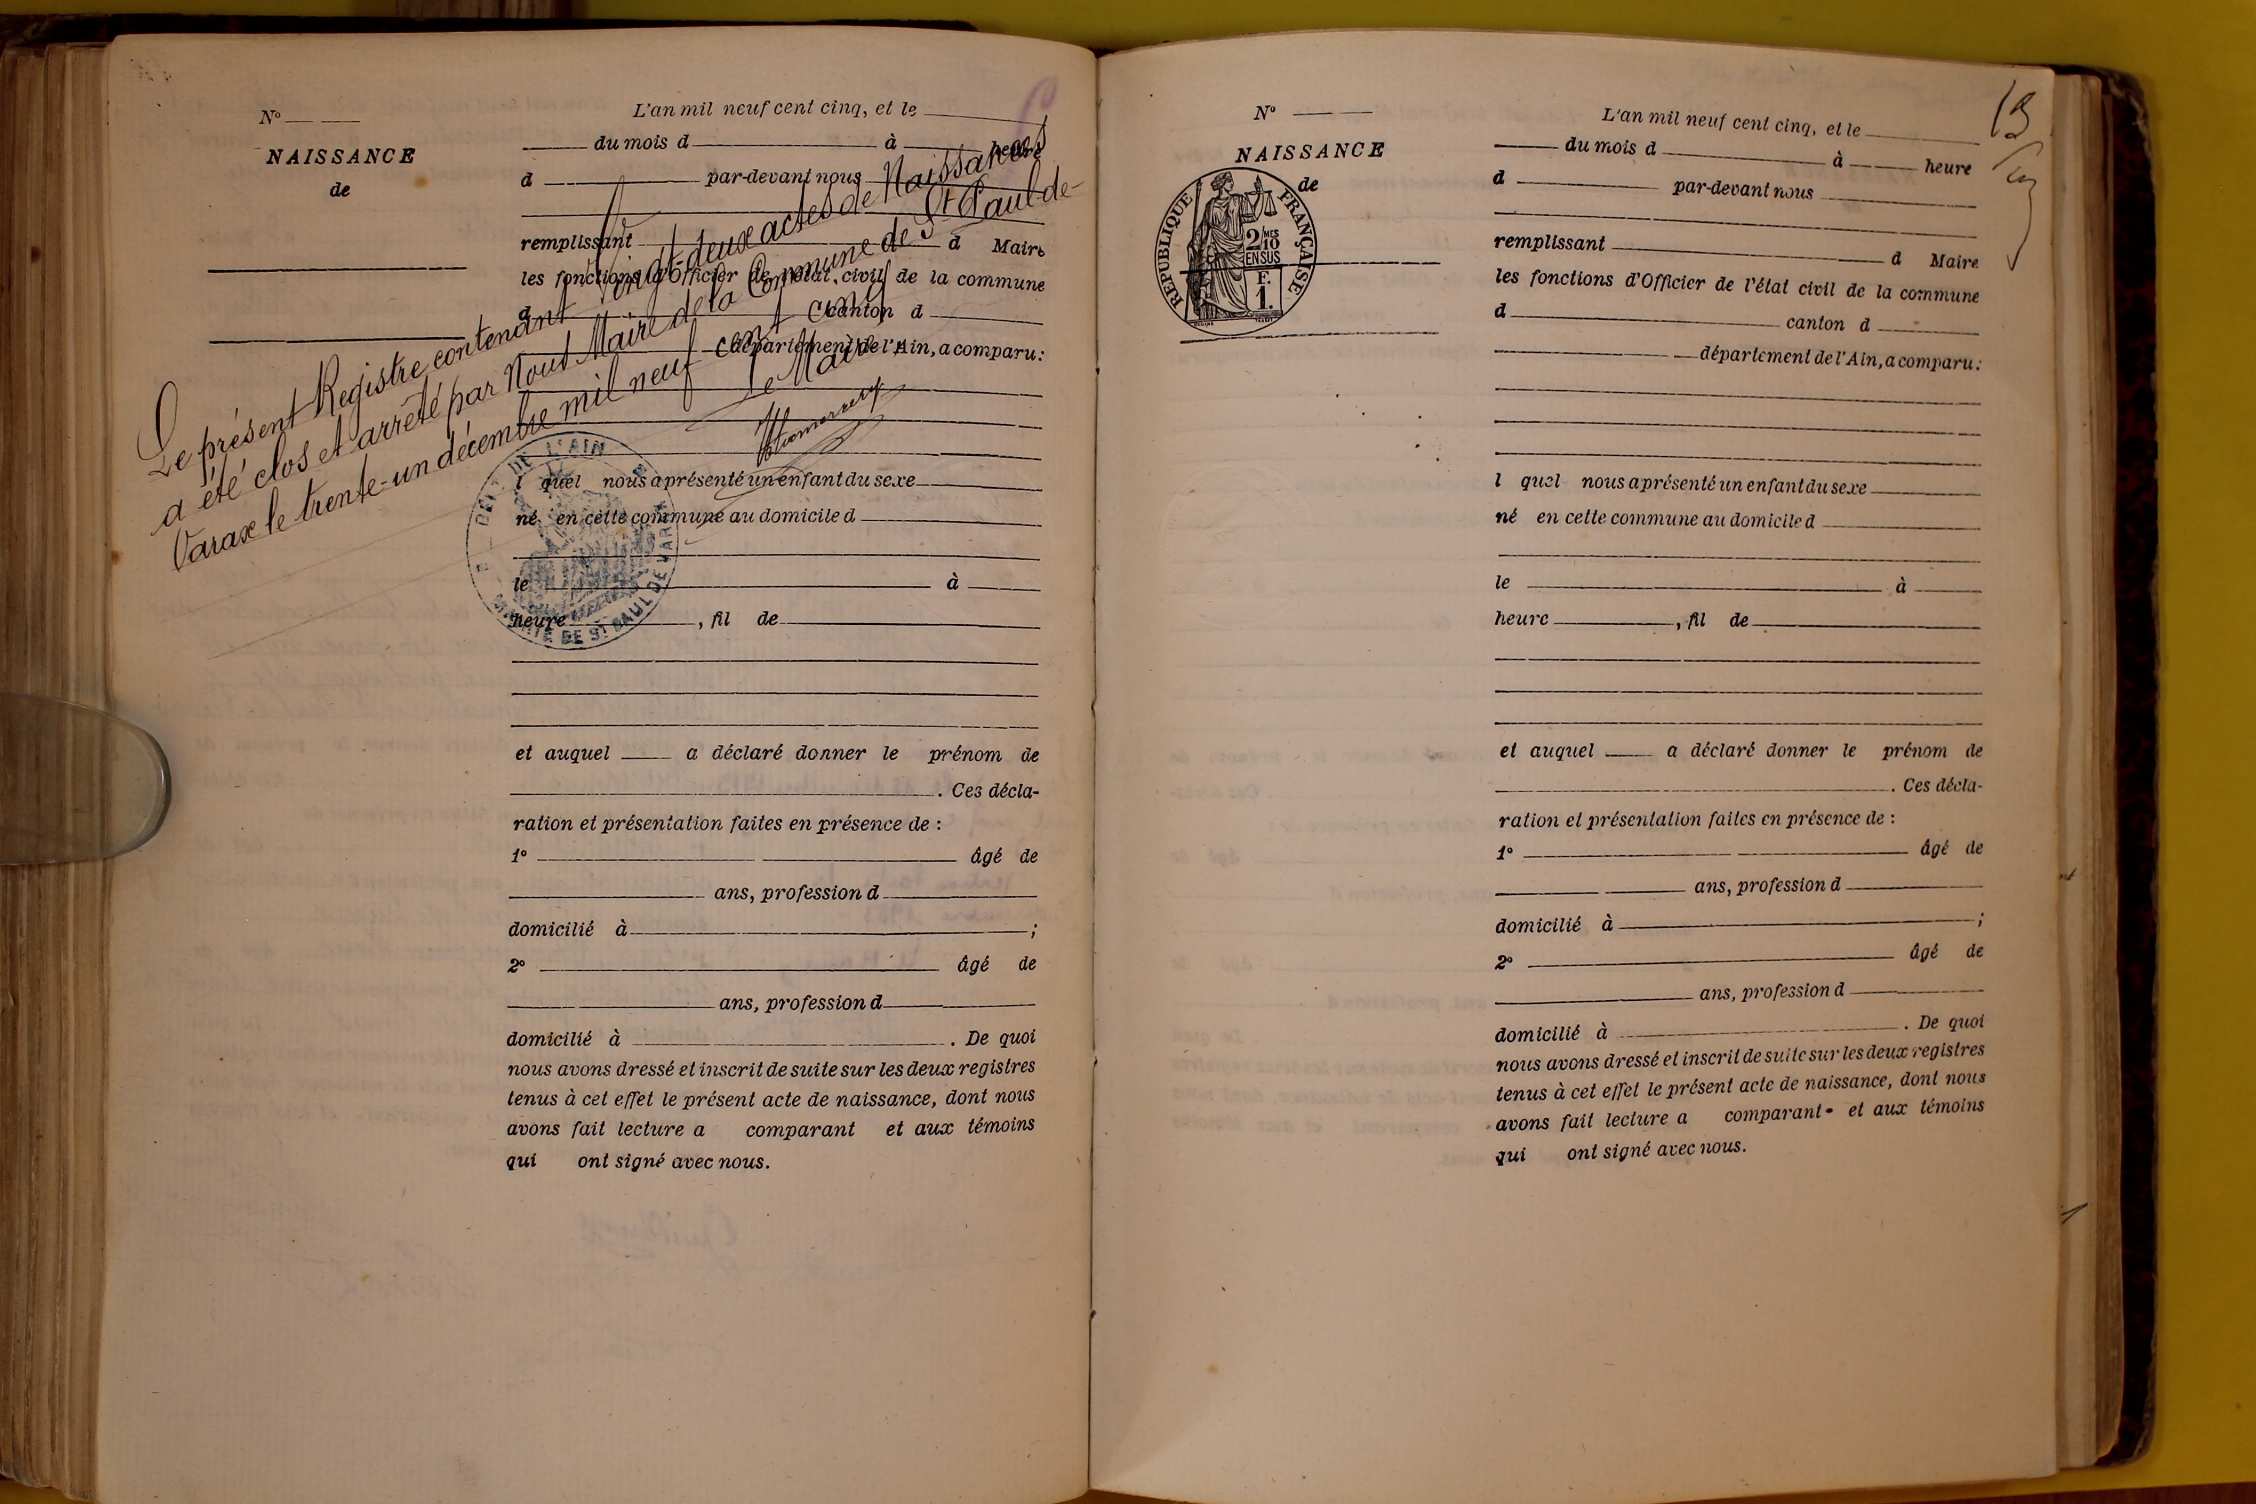 N°
NAISSANCE
de
L'an mil neuf cent cinq, et le
du mois d à heure
d par-devant nous
remplissant d Maire
les fonctions d'Officier de l'état civil de la commune
d canton d
département de l'Ain, a comparu:
l quel nous a présenté un enfant du sexe
né en cette commune au domicile d
le à
heure , fil de
et auquel a déclaré donner le prénom de
. Ces décla-
ration et présentation faites en présence de :
1° âgé de
ans, profession d
domicilié à ;
2° âgé de
ans, profession d
domicilié à . De quoi
nous avons dressé et inscrit de suite sur les deux registres
tenus à cet effet le présent acte de naissance, dont nous
avons fait lecture a comparant et aux témoins
qui ont signé avec nous.
Le présent Registre contenant Vingt-deux actes de Naissances
a été clos et arrêté par Nous Maire de la Commune de St Paul-de-
Varax le trente-un décembre mil neuf cent cinq
Le Maire
DE L'AIN
MAIRIE DE ST PAUL DE VARAX
N°
NAISSANCE
de
RÉPUBLIQUE FRANÇAISE
2/MES
10
EN SUS
F.
1.
13
L'an mil neuf cent cinq, et le
du mois d à heure
d par-devant nous
remplissant d Maire
les fonctions d'Officier de l'état civil de la commune
d canton d
département de l'Ain, a comparu:
l quel nous a présenté un enfant du sexe
né en cette commune au domicile d
le à
heure , fil de
et auquel a déclaré donner le prénom de
. Ces décla-
ration et présentation faites en présence de :
1° âgé de
ans, profession d
domicilié à ;
2° âgé de
ans, profession d
domicilié à . De quoi
nous avons dressé et inscrit de suite sur les deux registres
tenus à cet effet le présent acte de naissance, dont nous
avons fait lecture a comparant et aux témoins
qui ont signé avec nous.